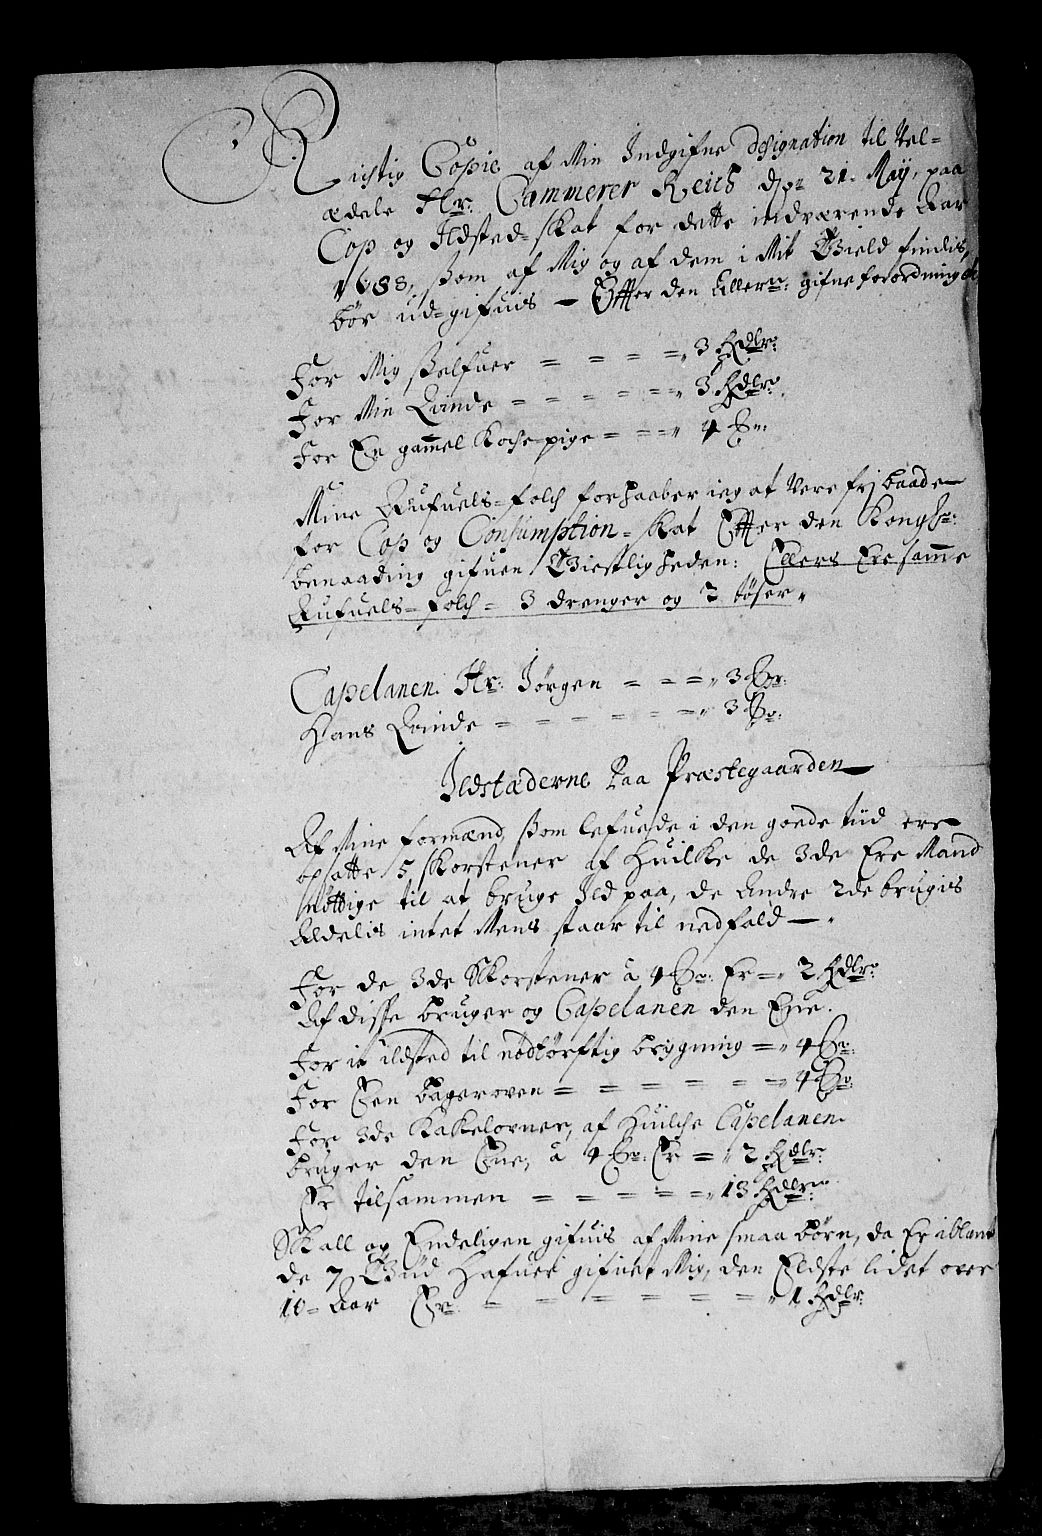 Richtig Copie af Min Indgifne Designation til Vel-
ædele Hr: Cammerer Reich dn 21. Maÿ, paa
Cop og Ildsted-skat for dette indværende Aar
1688, som af Mig og af dem i Mit Gield findis,
bör ud-gifuis — Effter den Allern: gifne forordning
For Mig Selfuer = = = = 3 Rdlr:
For Min Qvinde = = = = = = 3 Rdlr:
For En gammel Kochepige = = = 4
Mine Aufuels-folch forhaaber ieg at Vere frj baade
for Cop og Consumption-skat Effter den Kongl:
benaading gifuen Gieistligheden: Ellers Ere samme
Aufuels-folch = 3 drenger og 2 töser.
Capelanen Hr: Jörgen = = = 3
Hans Qvinde = = = = = = = 3
Ildstæderne Paa Præstegaarden
Af Mine formænd som lefuede i den goede tiid ere
opsatte 5 skorstener af Huilke de 3de Ere Mand
nöttige til at bruge Ild paa, de Andre 2de brugis
Aldelis intet Mens staar til nedfald —
For de 3de Skorstener â 4 Er = 2 Rdlr:
Af disse bruger og Capelanen den Ene.
For it ildsted til nödtörftig brygning = 4
For Een bageroven = = = = = = 4
For 3de Kakelovner, af Huilche Capelanen
bruger den Ene, â 4 Er = 2 Rdlr:
Er tilsammen = = = = = 13 Rdlr:
Skall og Endeligen gifuis af Mine smaa börn, da Er iblant
de 7 Gud Hafuer gifuet Mig, den Eldste lidet over
10 Aar Er = = = = = = 1 Rdlr: